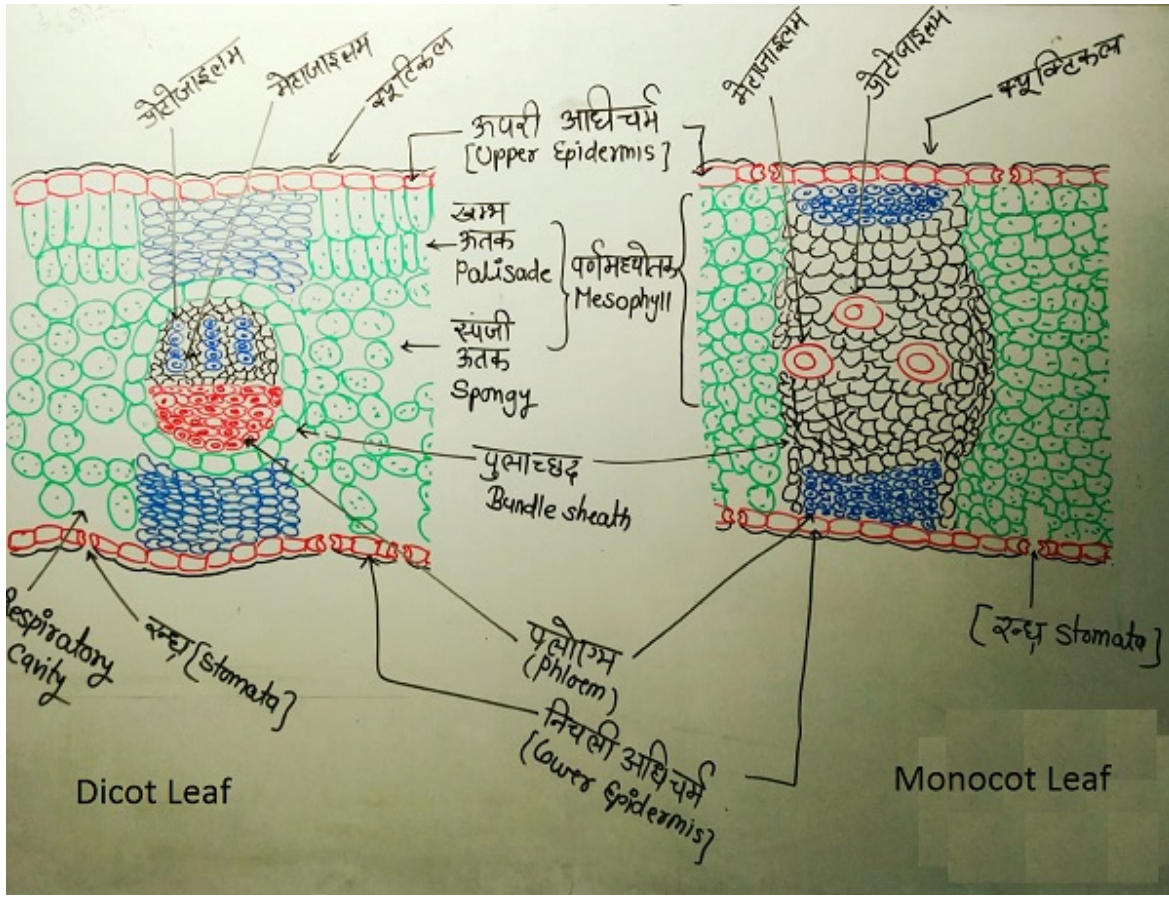 प्रोटोजाइलम
मेटाजाइलम
क्यूटिकल
ऊपरी अधिचर्म
[Upper Epidermis]
मेटाजाइलम
प्रोटोजाइलम
क्यूक्टिकल
खम्भ
ऊतक
Palisade
स्पंजी
ऊतक
Spongy
पर्णमध्योतक
Mesophyll
पुलाच्छद
Bundle sheath
Respiratory
Cavity
रन्ध्र [Stomata]
फ्लोएम
(Phloem)
निचली अधिचर्म
[Lower Epidermis]
[रन्ध्र Stomata]
Dicot Leaf
Monocot Leaf